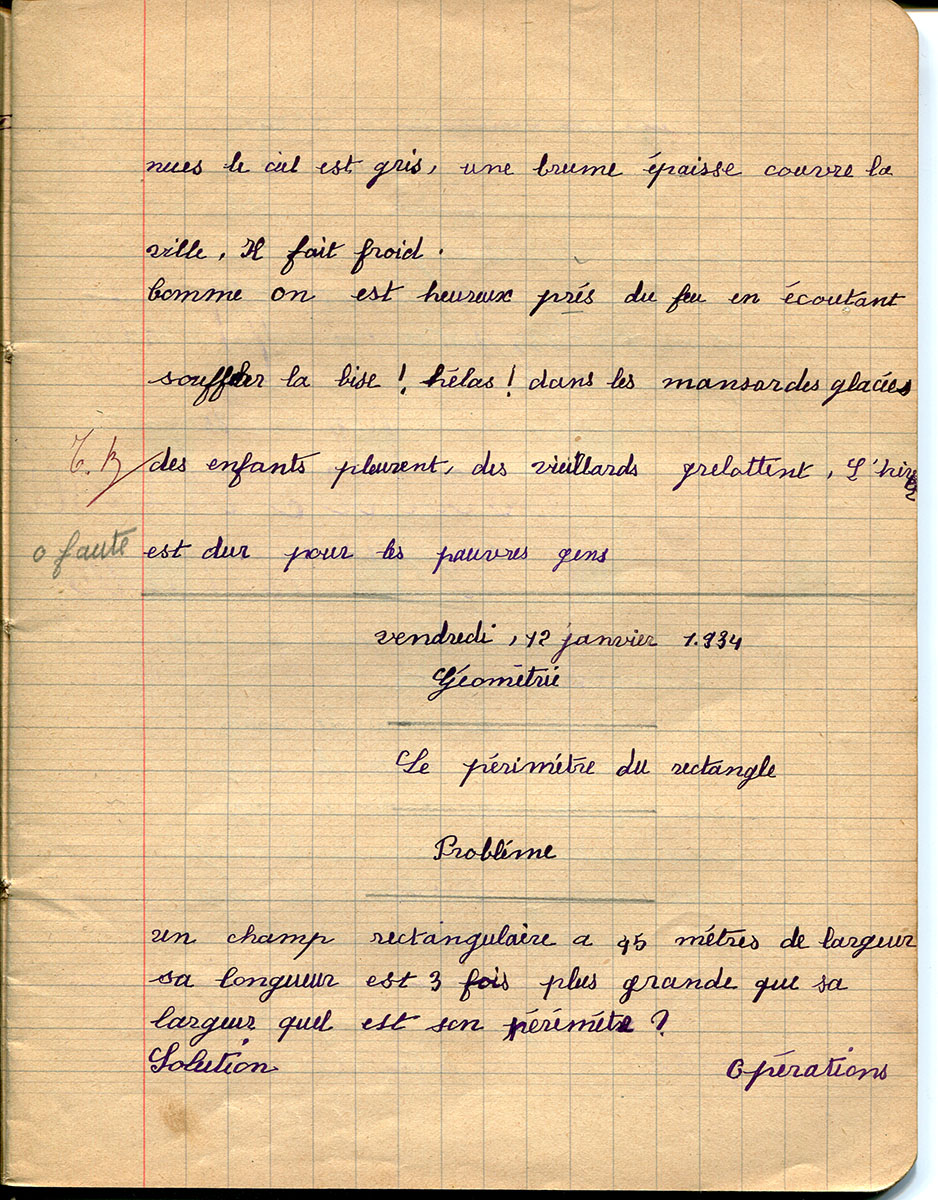 nues le ciel est gris, une brume épaisse couvre la
ville, Il fait froid.
Comme on est heureux prés du feu en écoutant
souffler la bise! hélas! dans les mansardes glacées
T.B des enfants pleurent, des vieillards grelottent, L'hiver
0 faute est dur pour les pauvres gens
vendredi, 12 janvier 1.934
Géométrie
Le périmétre du rectangle
Probléme
un champ rectangulaire a 45 métres de largeur
sa longueur est 3 fois plus grande que sa
largeur quel est son périmétre?
Solution Opérations